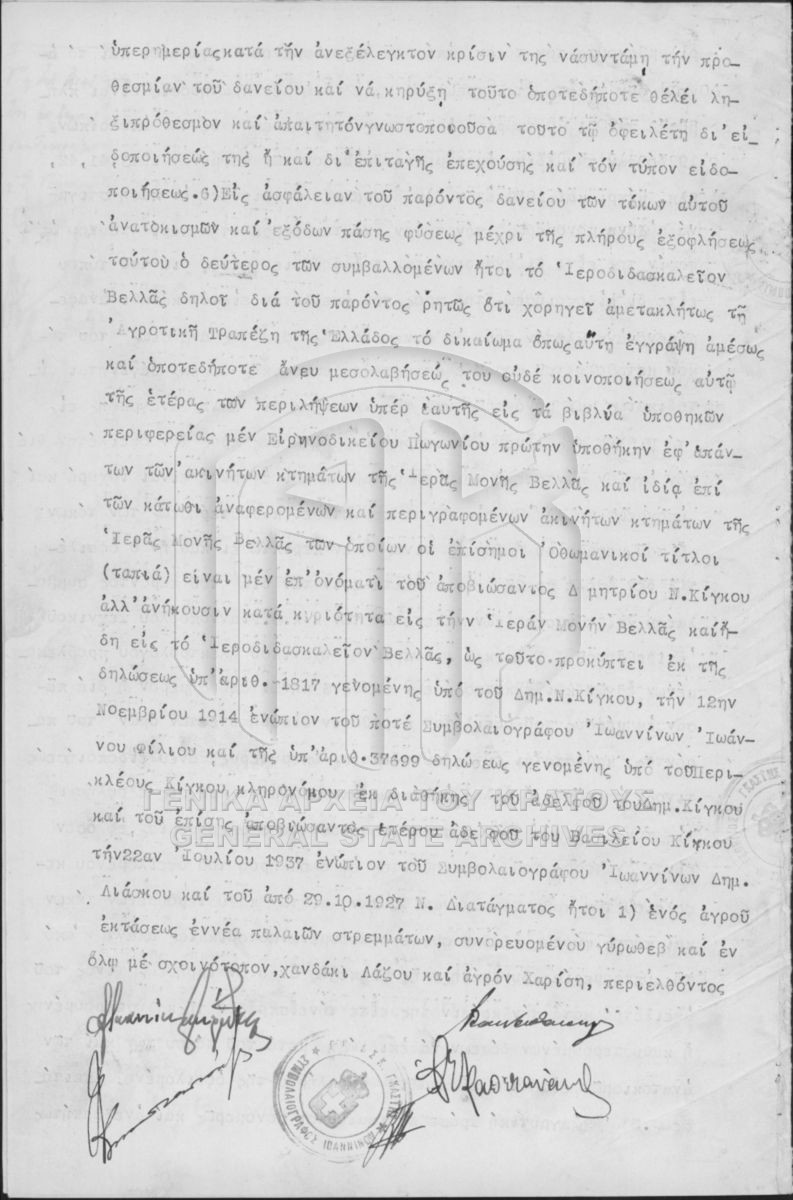 ὑπερημερίας κατά τήν ἀνεξέλεγκτον κρίσιν της νά συντάμῃ τήν προ-
θεσμίαν τοῦ δανείου καί νά κηρύξῃ τοῦτο ὁποτεδήποτε θέλει λη-
ξιπρόθεσμον καί ἀπαιτητόν γνωστοποιοῦσα τοῦτο τῷ ὀφειλέτῃ δι'εἰ-
δοποιήσεώς της ἤ καί δι'ἐπιταγῆς ἐπεχούσης καί τόν τύπον εἰδο-
ποιήσεως.6)Εἰς ἀσφάλειαν τοῦ παρόντος δανείου τῶν τόκων αὐτοῦ
ἀνατοκισμῶν καί ἐξόδων πάσης φύσεως μέχρι τῆς πλήρους ἐξοφλήσεως
τούτου ὁ δεύτερος τῶν συμβαλλομένων ἤτοι τό Ἱεροδιδασκαλεῖον
Βελλᾶς δηλοῖ διά τοῦ παρόντος ρητῶς ὅτι χορηγεῖ ἀμετακλήτως τῇ
Ἀγροτικῇ Τραπέζῃ τῆς Ἑλλάδος τό δικαίωμα ὅπως αὕτη ἐγγράψῃ ἀμέσως
καί ὁποτεδήποτε ἄνευ μεσολαβήσεώς του οὐδέ κοινοποιήσεως αὐτῷ
τῆς ἑτέρας τῶν περιλήψεων ὑπέρ ἑαυτῆς εἰς τά βιβλία ὑποθηκῶν
περιφερείας μέν Εἰρηνοδικείου Πωγωνίου πρώτην ὑποθήκην ἐφ'ἁπάν-
των τῶν ἀκινήτων κτημάτων τῆς Ἱερᾶς Μονῆς Βελλᾶς καί ἰδίᾳ ἐπί
τῶν κάτωθι ἀναφερομένων καί περιγραφομένων ἀκινήτων κτημάτων τῆς
Ἱερᾶς Μονῆς Βελλᾶς τῶν ὁποίων οἱ ἐπίσημοι Ὀθωμανικοί τίτλοι
(ταπιά) εἶναι μέν ἐπ'ὀνόματι τοῦ ἀποβιώσαντος Δ μητρίου Ν.Κίγκου
ἀλλ'ἀνήκουσιν κατά κυριότητα εἰς τήν Ἱεράν Μονήν Βελλᾶς καί ἤ-
δη εἰς τό Ἱεροδιδασκαλεῖον Βελλᾶς, ὡς τοῦτο προκύπτει ἐκ τῆς
δηλώσεως ὑπ'ἀριθ.-1817 γενομένης ὑπό τοῦ Δημ.Ν.Κίγκου, τήν 12ην
Νοεμβρίου 1914 ἐνώπιον τοῦ ποτέ Συμβολαιογράφου Ἰωαννίνων Ἰωάν-
νου Φίλιου καί τῆς ὑπ'ἀριθ.37699 δηλώ εως γενομένης ὑπό τοῦ Περι-
κλέους Κίγκου κληρονόμου ἐκ διαθήκης τοῦ ἀδελφοῦ του Δημ.Κίγκου
ΓΕΝΙΚΑ ΑΡΧΕΙΑ ΤΟΥ ΚΡΑΤΟΥΣ
καί τοῦ ἐπίσης ἀποβιώσαντος ἑτέρου ἀδε φοῦ του Βασιλείου Κίγκου
GENERAL STATE ARCHIVES
τήν 22αν Ἰουλίου 1937 ἐνώπιον τοῦ Συμβολαιογράφου Ἰωαννίνων Δημ.
Λιάσκου καί τοῦ ἀπό 29.10.1927 Ν. Διατάγματος ἤτοι 1) ἑνός ἀγροῦ
ἐκτάσεως ἐννέα παλαιῶν στρεμμάτων, συνορευομένου γύρωθεβ καί ἐν
ὅλῳ μέ σχοινότοπον, χανδάκι Λάζου καί ἀγρόν Χαρίση, περιελθόντος
ΣΥΜΒΟΛΑΙΟΓΡΑΦΟΣ ΙΩΑΝΝΙΝΩΝ